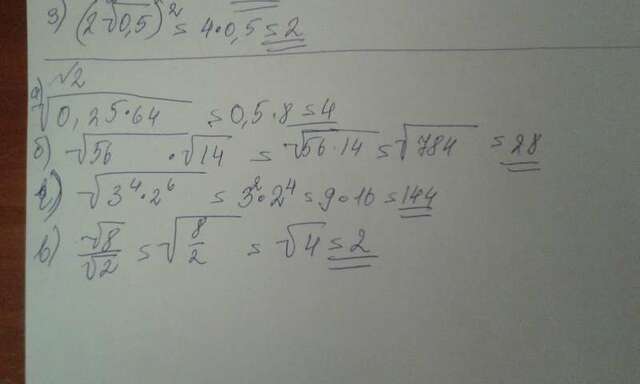 з) (2√0,5)² = 4•0,5 = 2
√2
а) √0,25•64 = 0,5•8 = 4
б) √56 • √14 = √56•14 = √784 = 28
г) √3⁴•2⁶ = 3²•2⁴ = 9•16 = 144
в) √8/√2 = √8/2 = √4 = 2